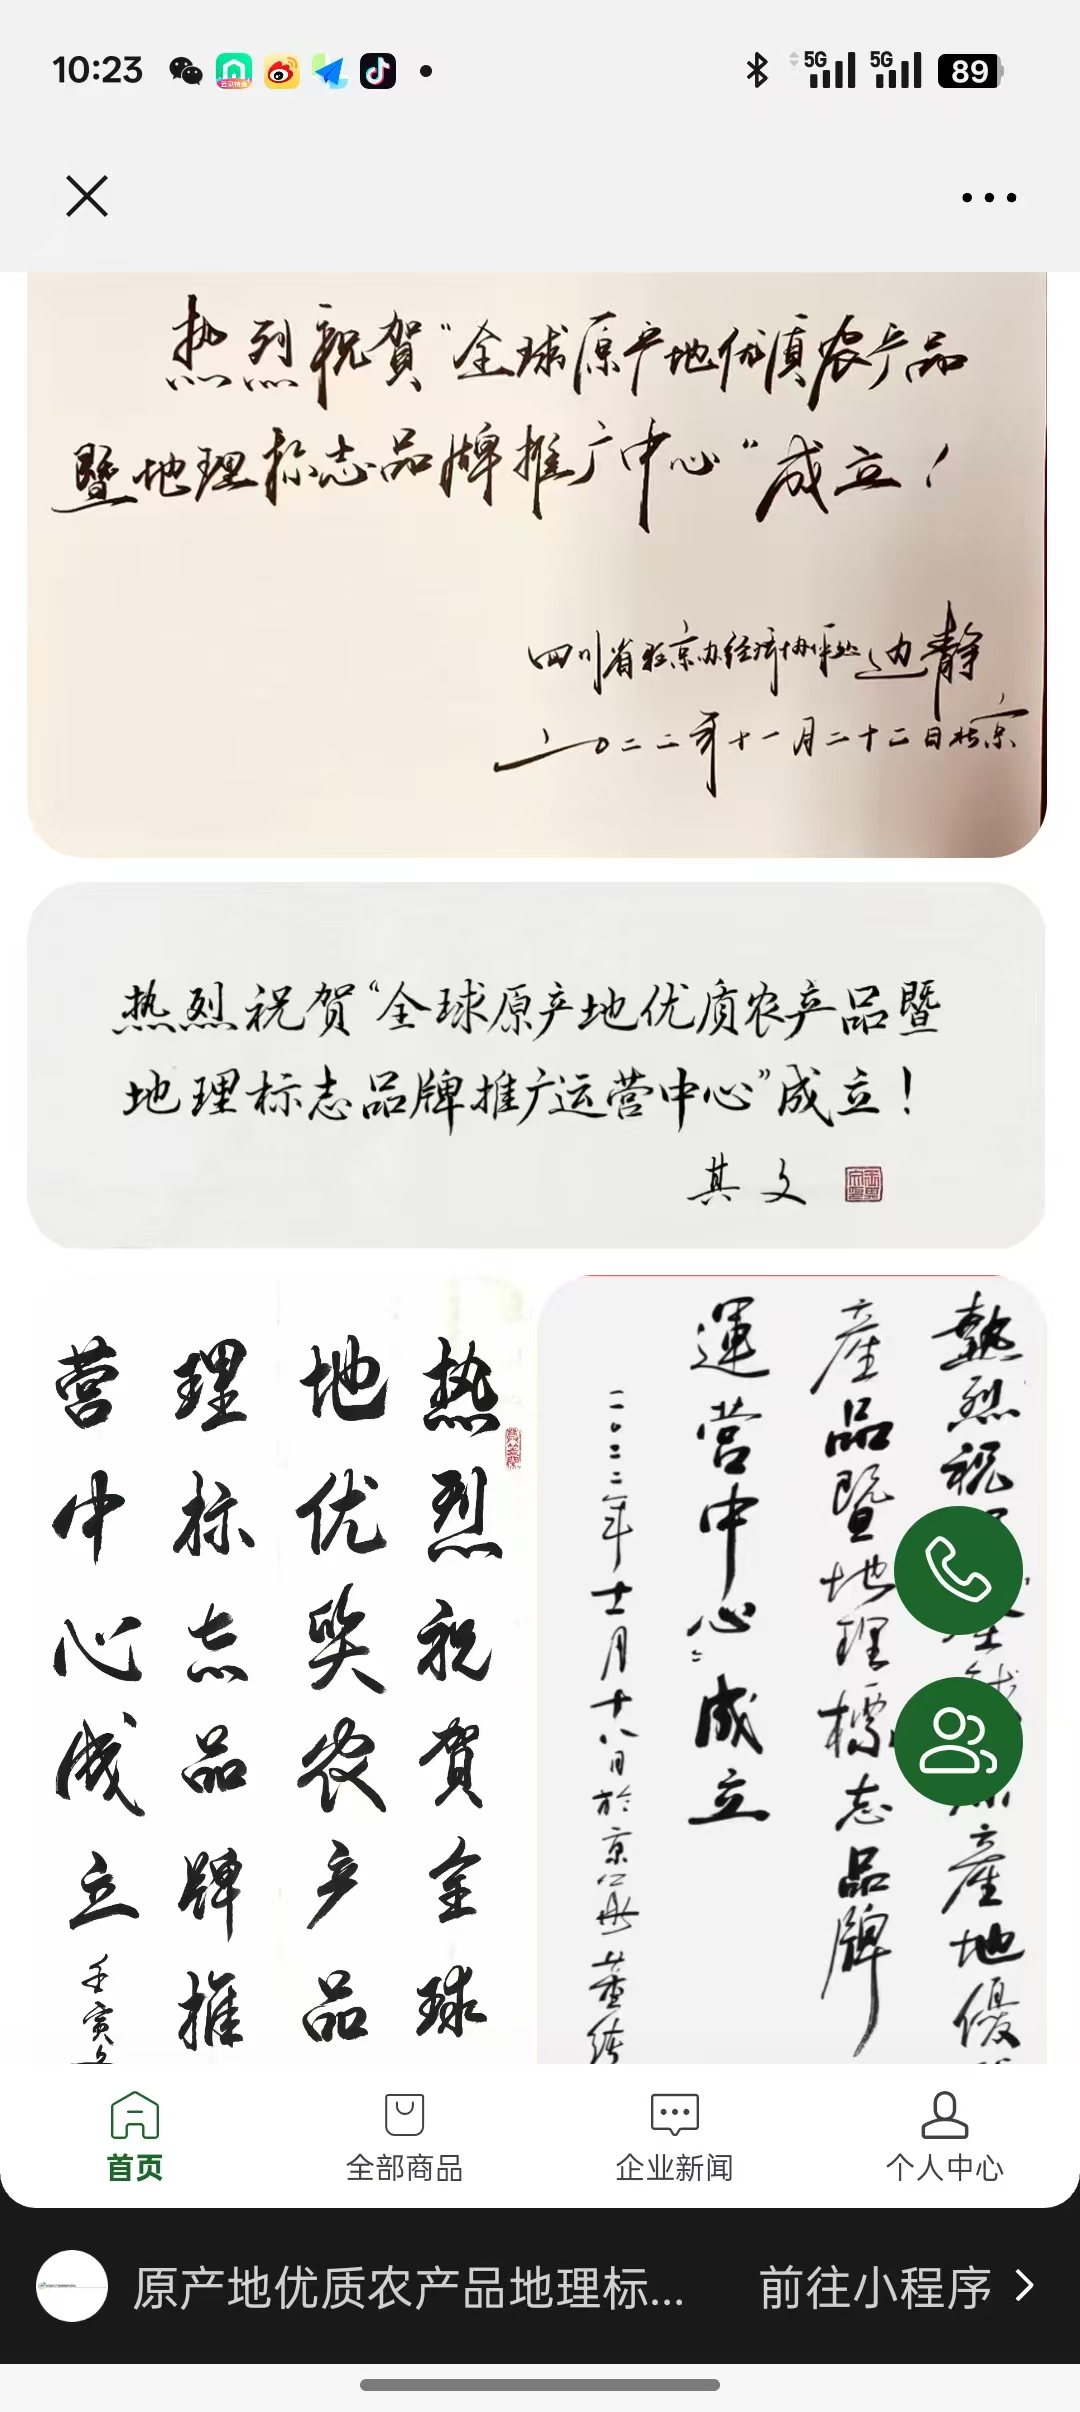 10:23
5G 5G 89
热烈祝賀“全球原产地优质农产品
暨地理标志品牌推广中心”成立！
四川省驻京办经济协作处边静
二0二二年十一月二十二日北京
热烈祝贺“全球原产地优质农产品暨
地理标志品牌推广运营中心”成立！
其文
热烈祝賀全球
地优质农产品
理标志品牌推
营中心成立
壬寅
熱烈祝
產地優
產品暨地理標志品牌
運營中心”成立
二0二二年十一月十八日於京
首页
全部商品
企业新闻
个人中心
原产地优质农产品地理标...
前往小程序